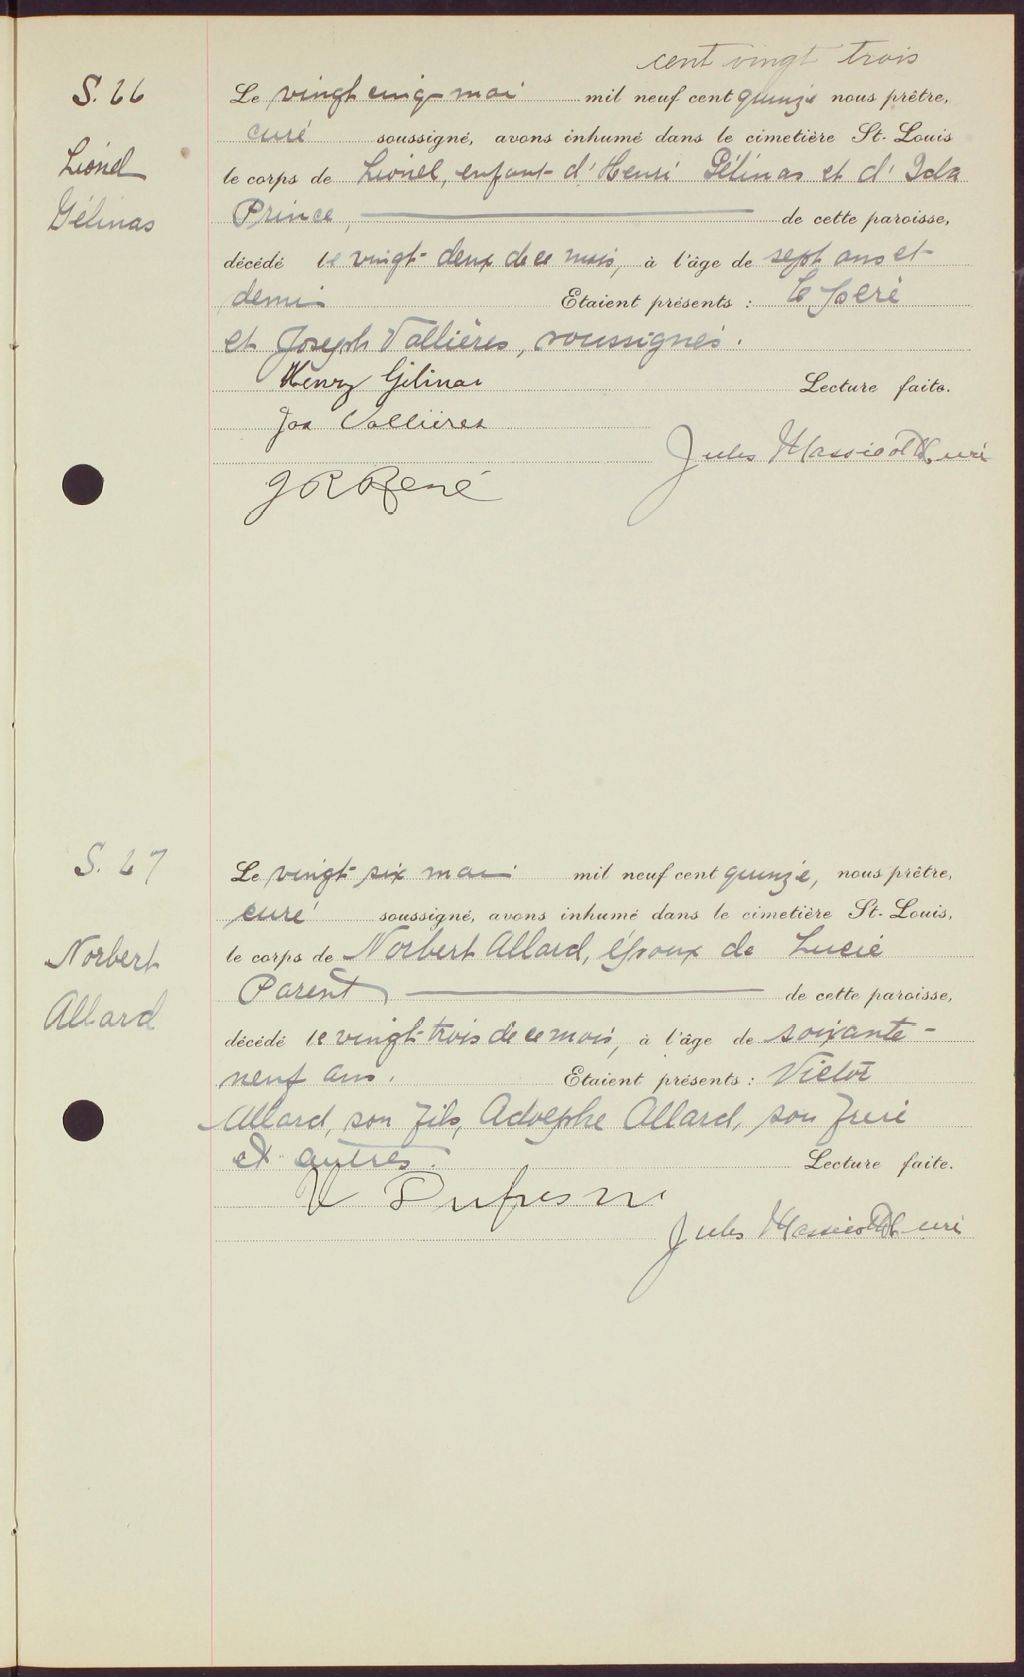 cent vingt trois
S. 26
Lionel
Gélinas
Le vingt cinq mai mil neuf cent quinze nous prêtre,
curé soussigné, avons inhumé dans le cimetière St-Louis
le corps de Lionel, enfant d'Henri Gélinas et d'Ida
Prince, de cette paroisse,
décédé le vingt-deux de ce mois, à l'âge de sept ans et
demi Etaient présents : le père
et Joseph Vallières, soussignés.
Henry Gélinas
Lecture faite.
Jos Vallières
Jules Massicotte Curé
J R René
S. 27
Norbert
Allard
Le vingt-six mai mil neuf cent quinze, nous prêtre,
curé soussigné, avons inhumé dans le cimetière St-Louis,
le corps de Norbert Allard, époux de Lucie
Parent de cette paroisse,
décédé le vingt-trois de ce mois, à l'âge de soixante-
neuf ans. Etaient présents : Victor
Allard, son fils, Adolphe Allard, son frère
et autres. Lecture faite.
Dufresne
Jules Massicotte curé